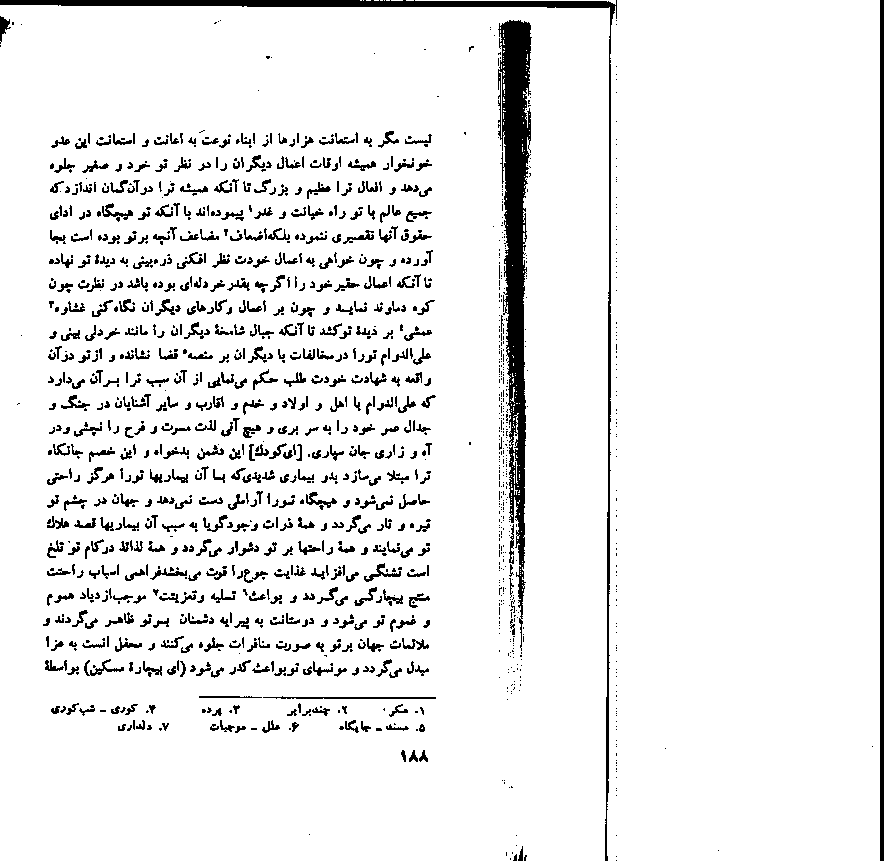 نیست مگر به استعانت هزارها از ابناء نوعت به اعانت و استعانت این عدو
خونخوار همیشه اوقات اعمال دیگران را در نظر تو خرد و صغیر جلوه
می‌دهد و افعال ترا عظیم و بزرگ تا آنکه همیشه ترا در آن‌گمان اندازد که
جمیع عالم با تو راه خیانت و غدر۱ پیموده‌اند با آنکه تو هیچگاه در ادای
حقوق آنها تقصیری ننموده بلکه اضعاف۲ مضاعف آنچه بر تو بوده است بجا
آورده و چون خواهی به اعمال خودت نظر افکنی ذره‌بینی به دیدهٔ تو نهاده
تا آنکه اعمال حقیر خود را اگرچه بقدر خردله‌ای بوده باشد در نظرت چون
کوه دماوند نماید و چون بر اعمال وکارهای دیگران نگاه‌کنی غشاوه۳
عمشی۴ بر دیدهٔ توکشد تا آنکه جبال شامخهٔ دیگران را مانند خردلی بینی و
علی‌الدوام تورا در مخالفات با دیگران بر منصه۵ قضا نشانده و از تو در آن
واقعه به شهادت خودت طلب حکم می‌نمایی از آن سبب ترا بر آن می‌دارد
که علی‌الدوام با اهل و اولاد و خدم و اقارب و سایر آشنایان در جنگ و
جدال عمر خود را به سر بری و هیچ آنی لذت مسرت و فرح را نچشی و در
آه و زاری جان سپاری. [ای‌کودك] این دشمن بدخواه و این خصم جانکاه
ترا مبتلا می‌سازد بدو بیماری شدیدی‌که با آن بیماریها تورا هرگز راحتی
حاصل نمی‌شود و هیچگاه تورا آرامی دست نمی‌دهد و جهان در چشم تو
تیره و تار می‌گردد و همهٔ ذرات وجودگویا به سبب آن بیماریها قصد هلاك
تو می‌نمایند و همهٔ راحتها بر تو دشوار می‌گردد و همهٔ لذائذ درکام تو تلخ
است تشنگی می‌افزاید غذایت جوع را قوت می‌بخشد فراهمی اسباب راحتت
منتج بیچارگی می‌گردد و بواعث۶ تسلیه وتعزیتت۷ موجب ازدیاد هموم
و غموم تو می‌شود و دوستانت به پیرایه دشمنان بر تو ظاهر می‌گردند و
ملائمات جهان بر تو به صورت منافرات جلوه می‌کنند و محفل انست به عزا
مبدل می‌گردد و مونسهای تو بواعث کدر می‌شود (ای بیچارهٔ مسکین) بواسطهٔ
۱. مکر ۲. چندبرابر ۳. پرده ۴. کوری ـ شب‌کوری
۵. مسند ـ جایگاه ۶. علل ـ موجبات ۷. دلداری
۱۸۸